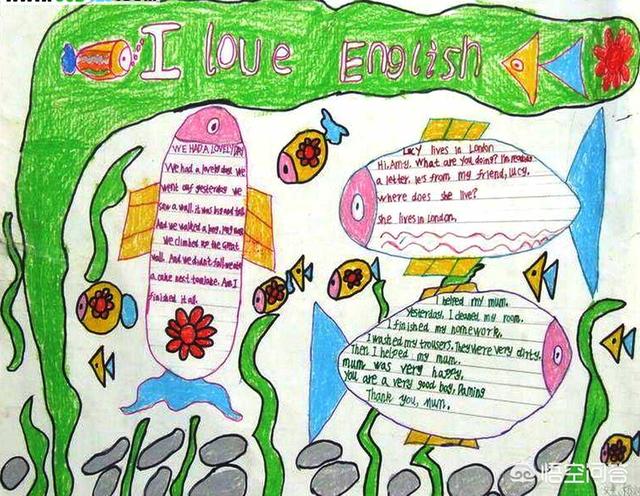 I love English
WE HAD A LOVELY DAY
We had a lovely day we
went out yesterday we
saw a wall. it was big and tall
And we walked a long, long way
We climbed up the Great
Wall. And we didn't fall
a cake next to a lake. And I
finished it all.
LUCY lives in London
Hi, Amy. What are you doing? I'm reading
a letter. It's from my friend, Lucy.
where does she live?
she lives in London.
I helped my mum.
Yesterday, I cleaned my room.
I finished my homework.
I washed my trousers. They were very dirty.
Then I helped my mum.
mum was very happy.
you are a very good boy, Daming
Thank you, mum.
悟空问答